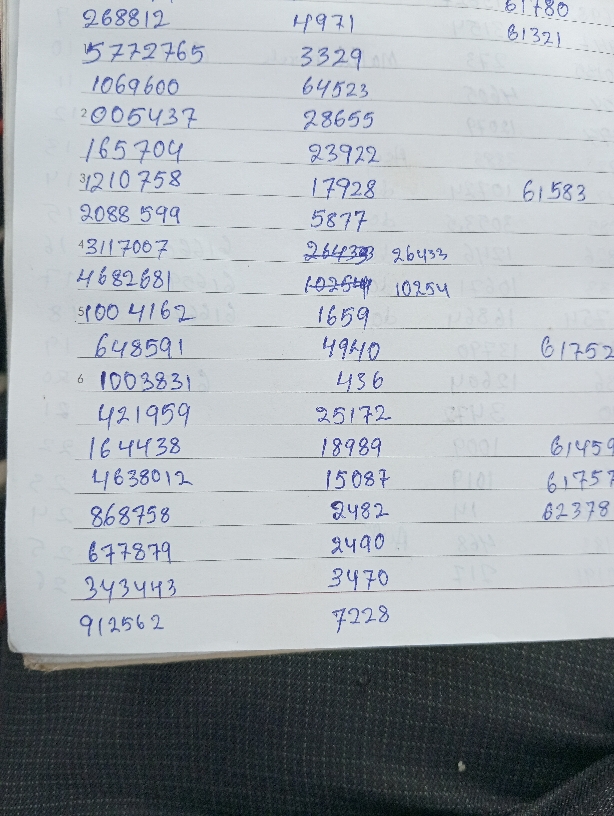 61780
268812 4971 61321
5772765 3329
1069600 64523
2 005437 28655
165704 23922
3 1210758 17928 61583
2088599 5877
4 3117007 26433 26433
4682681 10254 10254
5 1004162 1659
648591 4940 61752
6 1003831 436
421959 25172
164438 18989 61459
4638012 15087 61757
868758 2482 62378
677879 2490
343443 3470
912562 7228